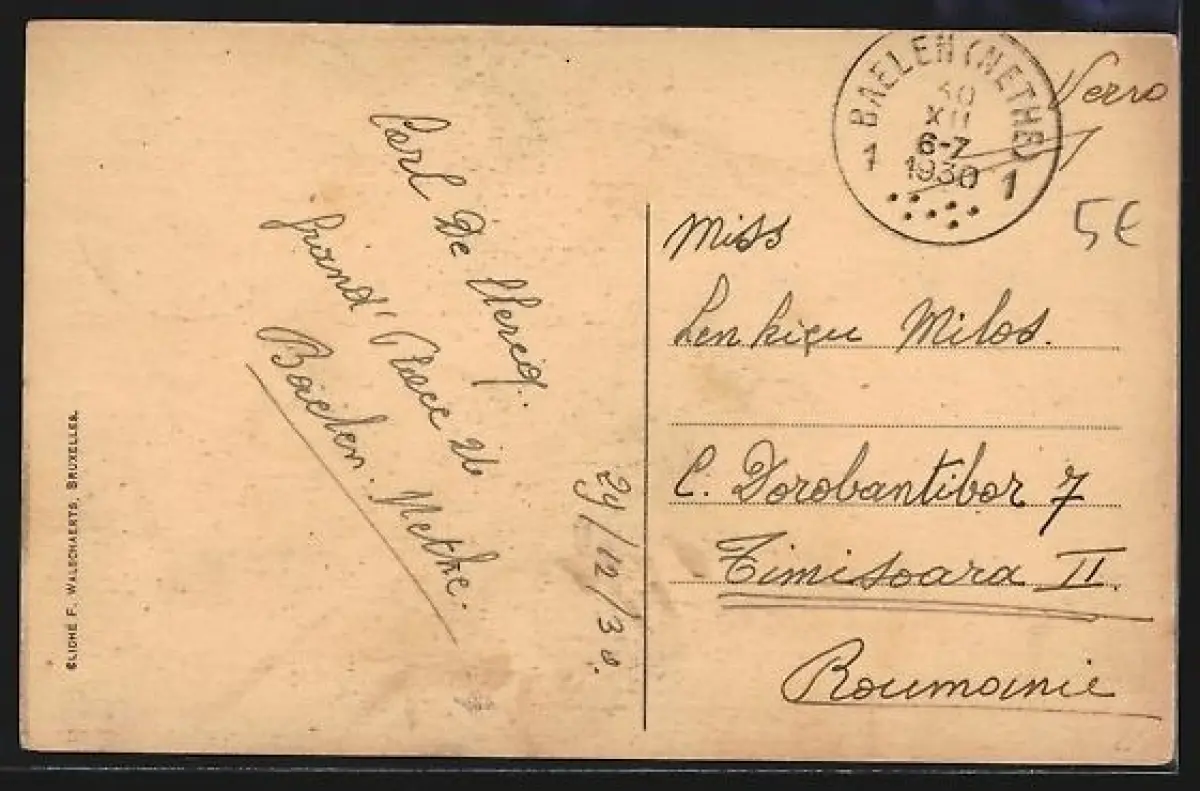 CLICHÉ F. WALSCHAERTS, BRUXELLES.
Carl De Clercq.
Grand' Place 26
Baelen-Nethe.
29/12/30.
BAELEN (NETHE)
30
XII
6-7
1930
1 1
5€
Miss
Milos.
C. Dorobantilor 7
Timisoara II.
Roumanie